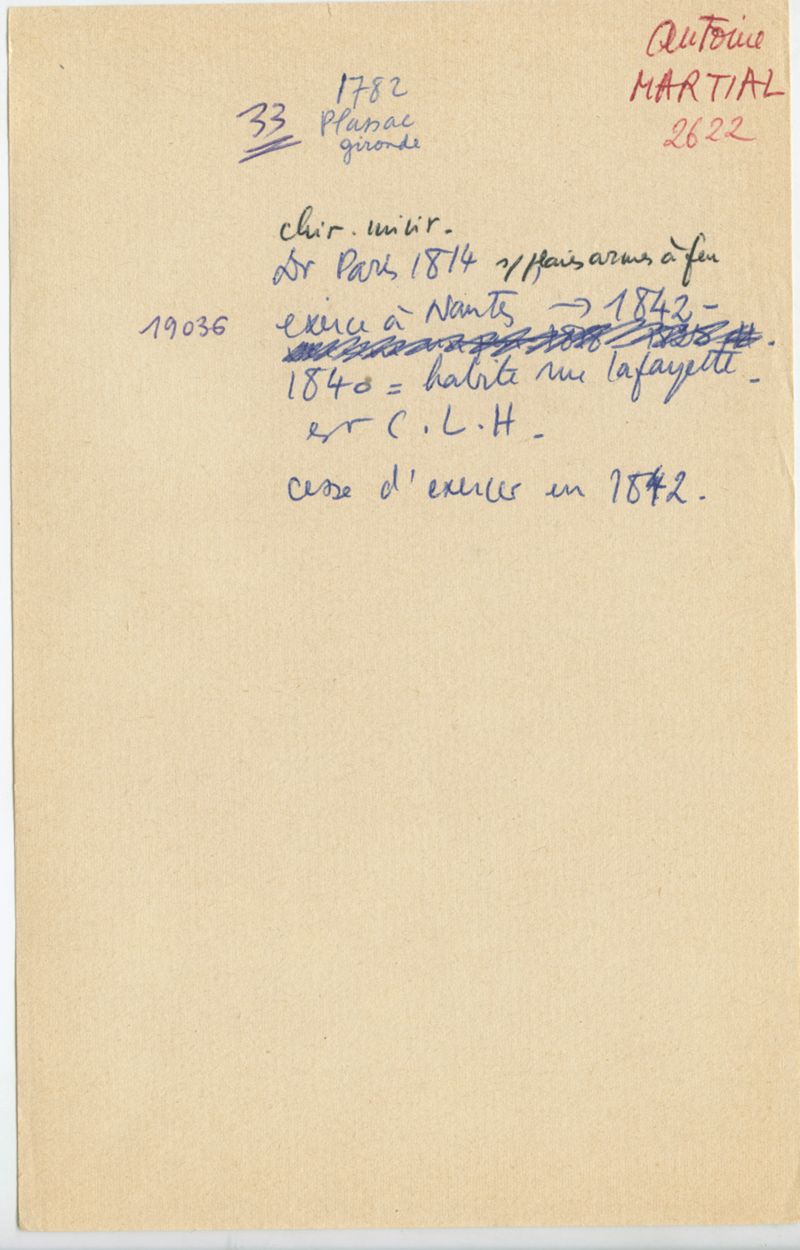 Antoine
MARTIAL
2622
1782
33 Plassac
gironde
chir. milit.
Dr Paris 1814 s/plaies armes à feu
19036 exerce à Nantes → 1842 -
1840 = habite rue Lafayette -
est C.L.H -
cesse d'exercer en 1842.